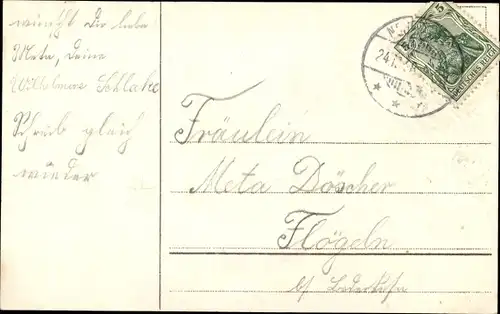 wünscht Dir liebe
Meta, Deine
Schlake
Schreib gleich
wieder
Fräulein
Meta Döscher
Flögeln
b/ Bederkesa
DEUTSCHES REICH
5
24.